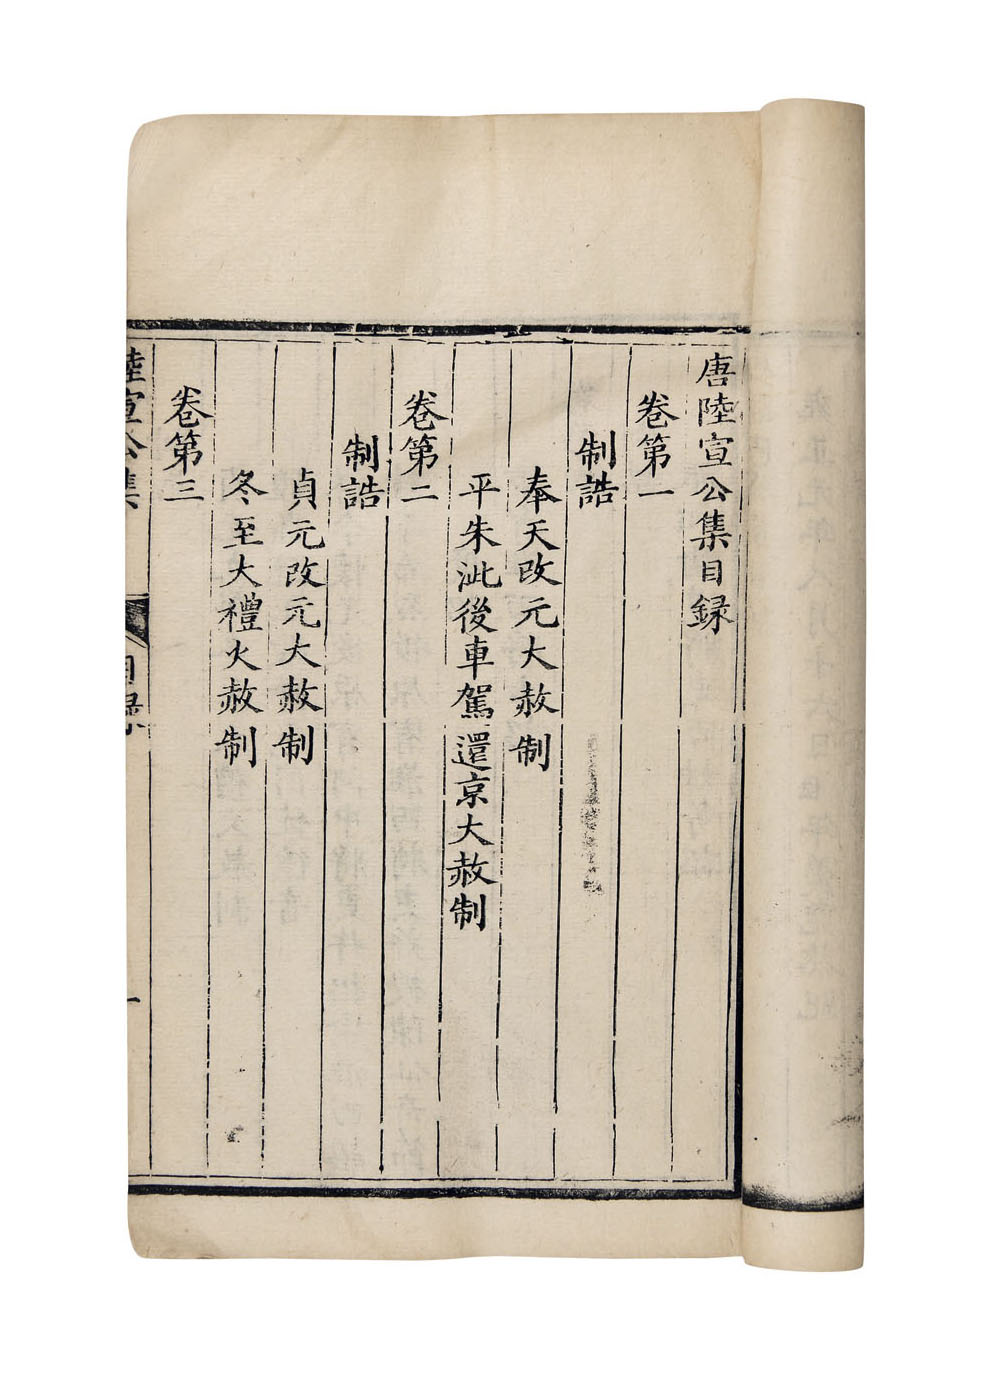 唐陸宣公集目録
卷第一
制誥
奉天改元大赦制
平朱泚後車駕還京大赦制
卷第二
制誥
貞元改元大赦制
冬至大禮大赦制
卷第三
陸宣公集
目録
一